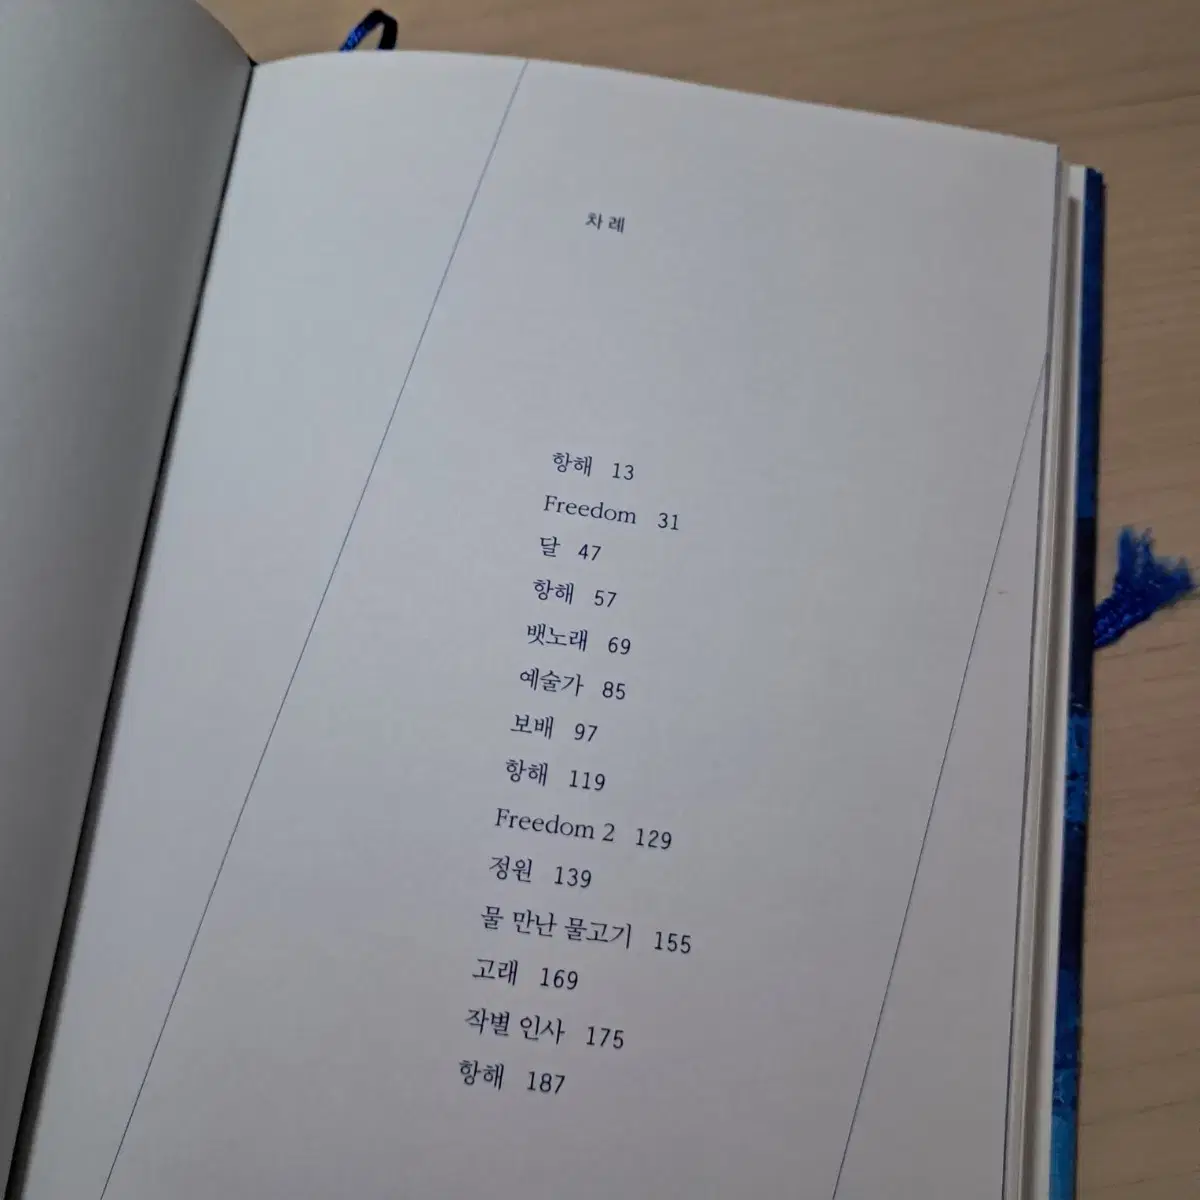 차례
항해 13
Freedom 31
달 47
항해 57
뱃노래 69
예술가 85
보배 97
항해 119
Freedom 2 129
정원 139
물 만난 물고기 155
고래 169
작별 인사 175
항해 187